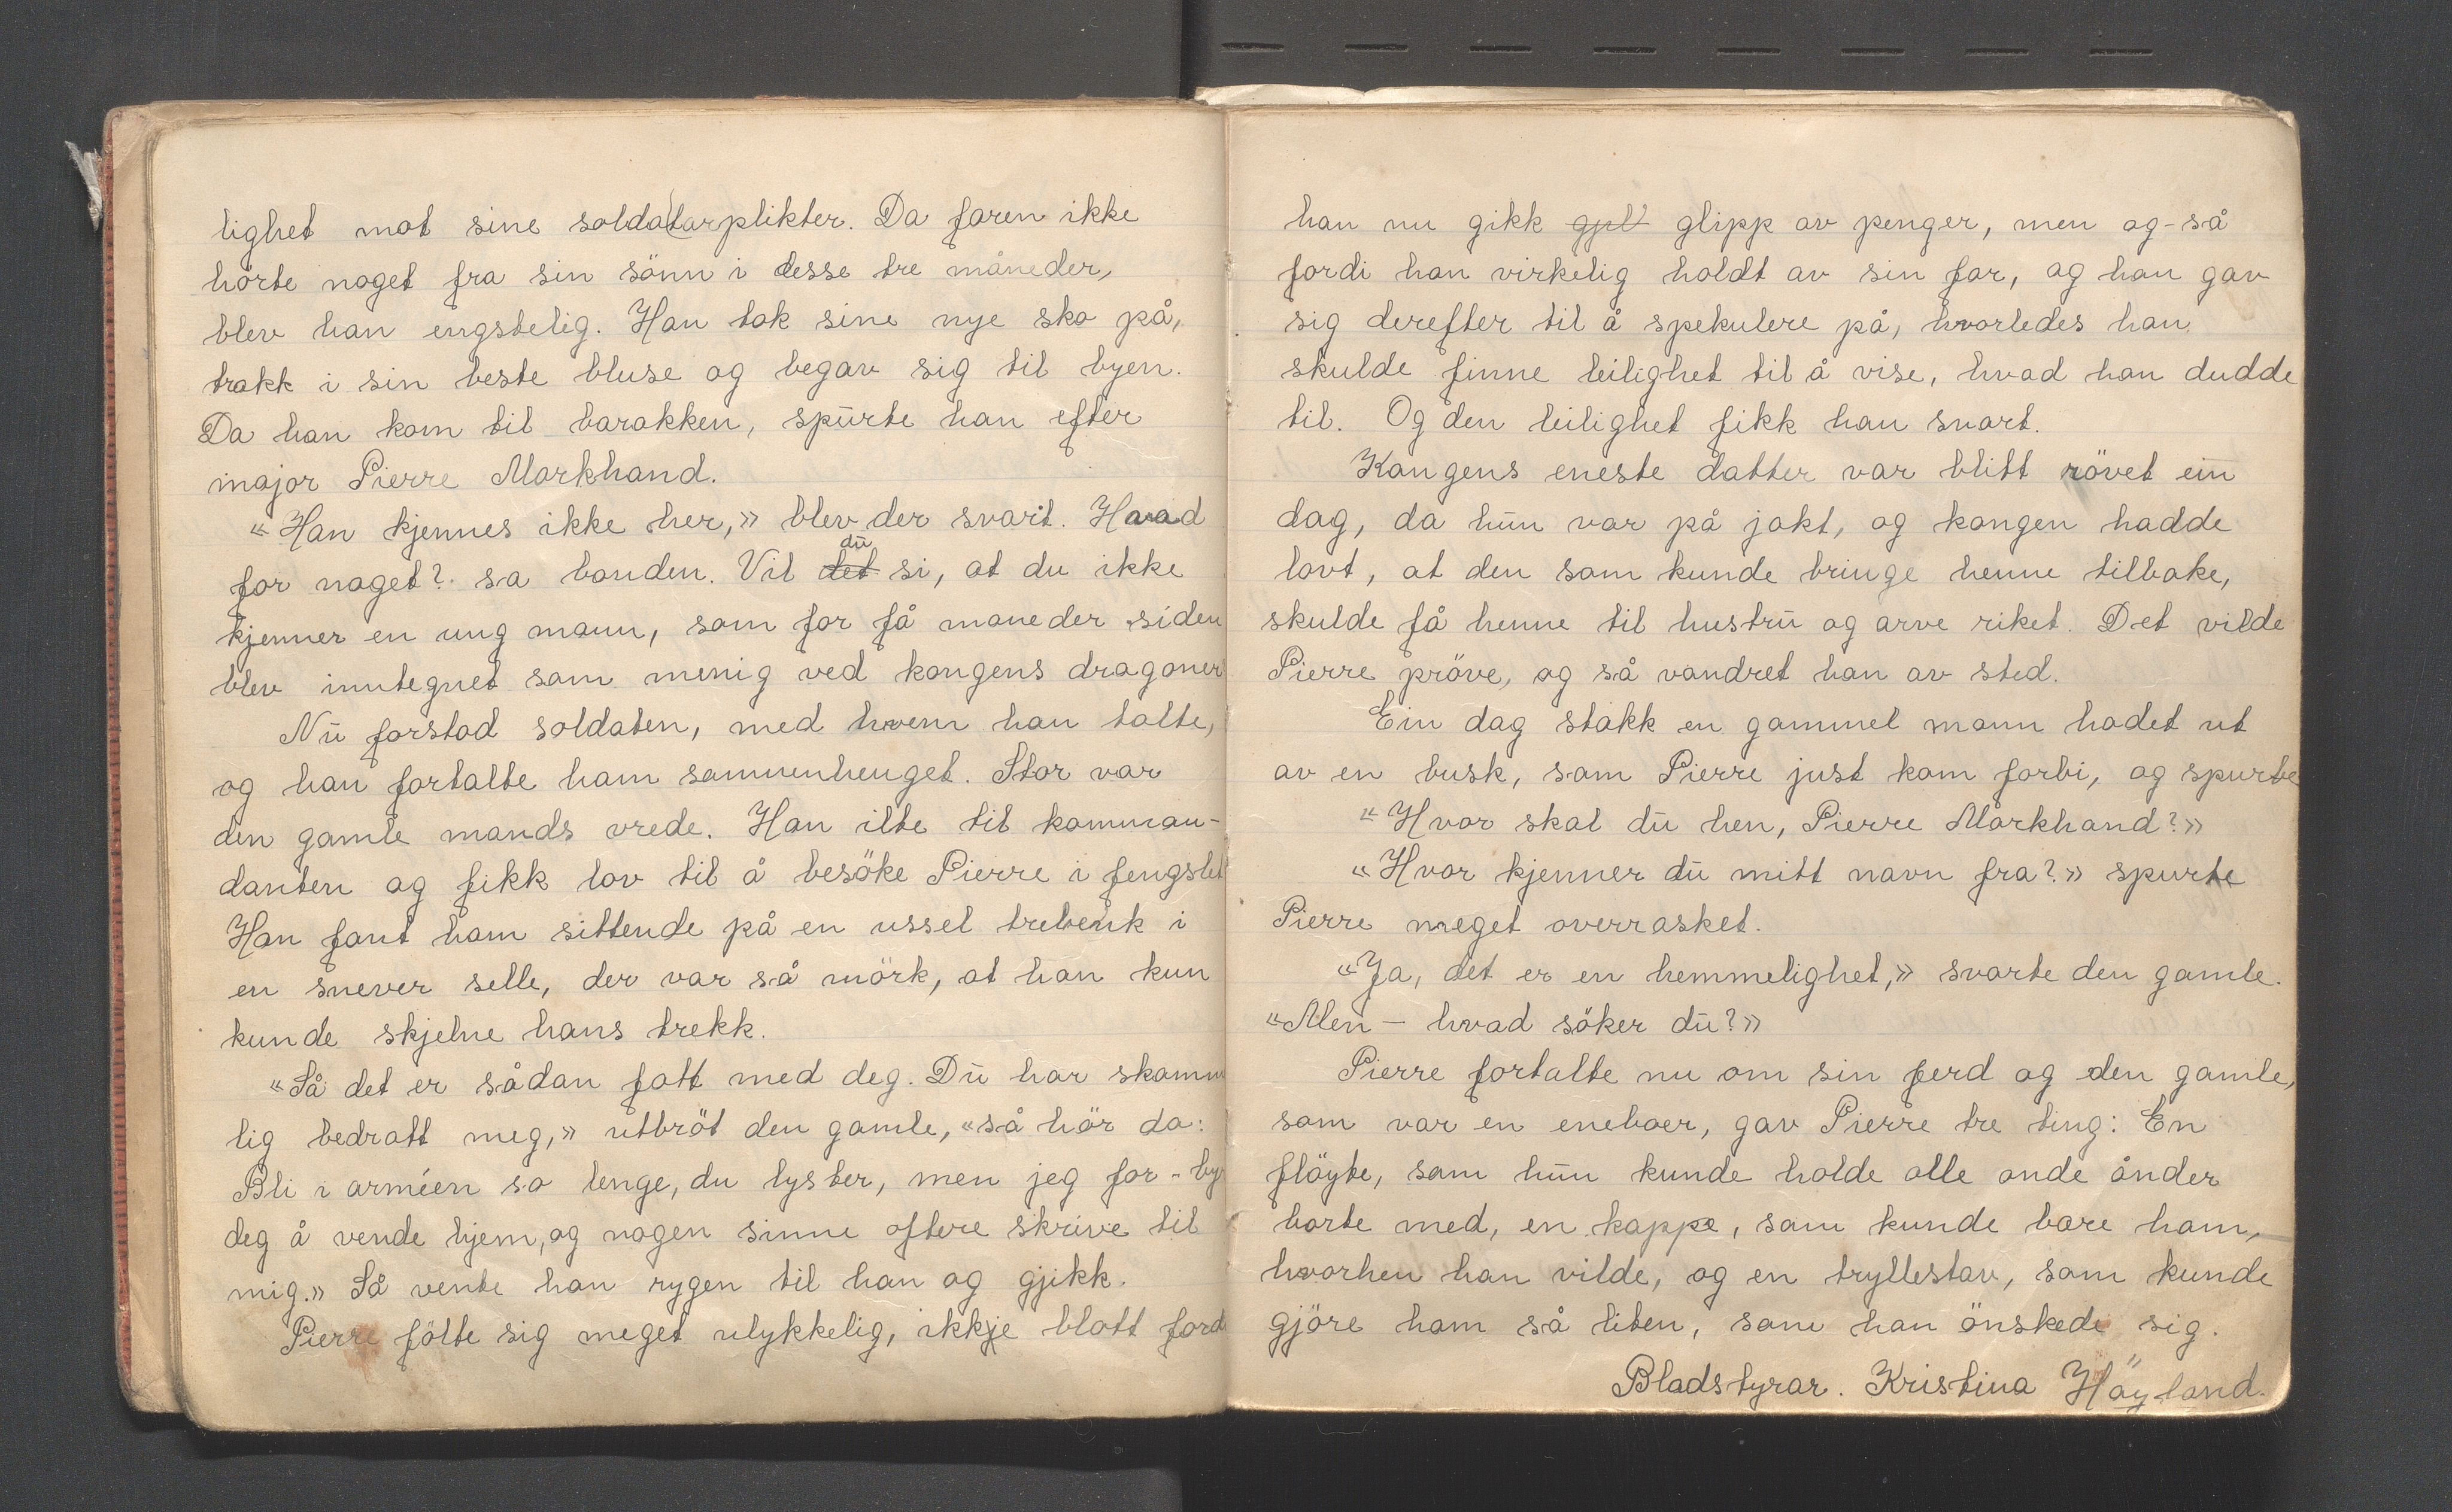 lighet mot sine soldatarplikter. Da faren ikke
hörte noget fra sin sönn i desse tre måneder,
blev han engstelig. Han tok sine nye sko på,
trakk i sin beste bluse og begav sig til byen.
Da han kom til barakken, spurte han efter
major Pierre Markhand.
«Han kjennes ikke her,» blev der svart. Hvad
for noget? sa bonden. Vil du si, at du ikke
kjenner en ung mann, som for få moneder siden
blev inntegnet som menig ved kongens dragoner
Nu forstod soldaten, med hvem han talte,
og han fortalte ham sammenhenget. Stor var
den gamle mands vrede. Han ilte til komman-
danten og fikk lov til å besöke Pierre i fengslet
Han fant ham sittende på en ussel trebenk i
en snever selle, der var så mörk, at han kun
kunde skjelne hans trekk.
«Så det er sådan fatt med deg. Du har skamm
lig bedratt meg,» utbröt den gamle, «så hör da:
Bli i arméen so lenge, du lyster, men jeg for-by
deg å vende hjem, og nogen sinne oftere skrive til
mig.» Så vente han rygen til han og gjikk.
Pierre fölte sig meget ulykkelig, ikkje blott ford
han nu gikk glipp av penger, men og-så
fordi han virkelig holdt av sin far, og han gav
sig derefter til å spekulere på, hvorledes han
skulde finne leilighet til å vise, hvad han dudde
til. Og den leilighet fikk han snart.
Kongens eneste datter var blitt rövet ein
dag, da hun var på jakt, og kongen hadde
lovt, at den som kunde bringe henne tilbake,
skulde få henne til hustru og arve riket. Det vilde
Pierre pröve, og så vandret han av sted.
Ein dag stakk en gammel mann hodet ut
av en busk, som Pierre just kom forbi, og spurte
«Hvor skal du hen, Pierre Markhand?»
«Hvor kjenner du mitt navn fra?» spurte
Pierre meget overrasket.
«Ja, det er en hemmelighet,» svarte den gamle.
«Men – hvad söker du?»
Pierre fortalte nu om sin ferd og den gamle,
som var en eneboer, gav Pierre tre ting: En
flöyte, som hun kunde holde alle onde ånder
borte med, en kappe, som kunde bære ham,
hvorhen han vilde, og en tryllestav, som kunde
gjöre ham så liten, som han önskede sig.
Bladstyrar. Kristina Höyland.